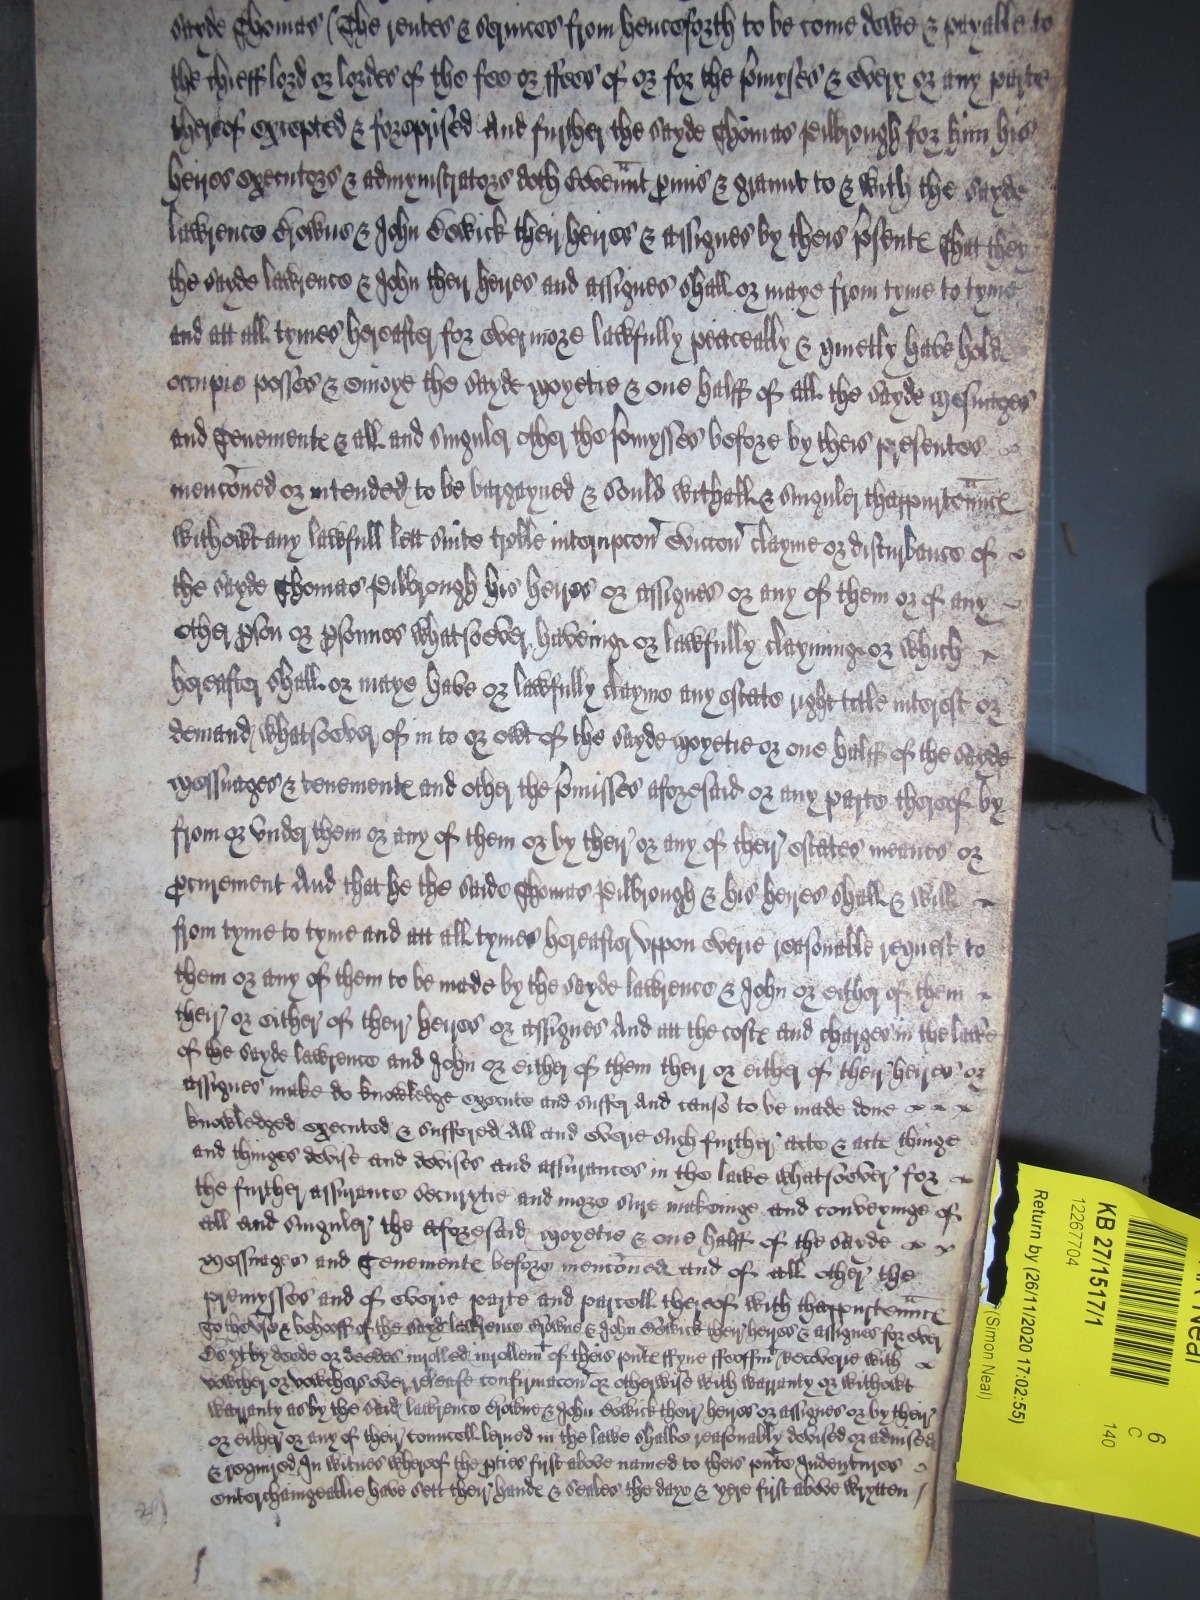 sayde Thomas (The rentes & services from henceforth to be come dewe & payable to
the chieff lord or lordes of the fee or ffees of or for the p'mysses & every or any parte
thereof excepted & foreprised And further the sayde Thomas Pilbrough for him his
heires executors & admynistrators doth Coven'nt p'mis & graunt to & with the sayde
Lawrence Crowne & John Cowick their heires & assignes by theis p'sent That they
the sayde Lawrence & John their heires and assignes shall or maye from tyme to tyme
and att all tymes hereafter for evermore lawfully peaceably & quietly have hold
occupie posses & enioye the sayde moyetie & one halff of all the sayde mesuages
and Tenement & all and singuler other the p'mysses before by theis presentes
menconed or intended to be bargayned & sould withall & singuler thappurten'nc
without any lawfull lett suite troble interupcon eviccon clayme or disturbance of
the sayde Thomas Pilbrough his heires or assignes or any of them or of any
other p'son or p'sonnes whatsoever haveing or lawfully clayming or which
hereafter shall or maye have or lawfully clayme any estate right title interest or
demand whatsoever of in to or owt of the sayde moyetie or one halff of the sayde
messuages & tenement and other the p'misses aforesaid or any parte thereof by
from or under them or any of them or by their or any of their estates meanes or
p'curement And that he the saide Thomas Pilbrough & his heires shall & will
from tyme to tyme and att all tymes hereafter uppon everie reasonable request to
them or any of them to be made by the sayde Lawrence & John or either of them
their or either of their heires or assignes And att the cost and charges in the lawe
of the sayde Lawrence and John or either of them their or either of their heires or
assignes make do knowledge execute and suffer And cause to be made done
knowledged executed & suffered All and everie such further acte & acte thinge
and thinges devise and devises and assurances in the lawe whatsoever for
the further assurance securytie and more sure makeinge and conveyinge of
all and singuler the aforesaid moyetie & one halff of the sayde
messuages and Tenement before menconed and of all other the
premysses and of everie parte and parcell thereof with thappurten'nc
To the use & behooff of the sayd Lawrence Crowne & John Cowick their heires & assignes for ever
Be yt by deede or deedes inrolled inrollem't of theis p'nte ffyne ffeoffm't Recoverie with
vowcher or vowchers over release confirmacon or otherwise with warranty or without
warranty as by the said Lawrence Crowne & John Cowick their heires or assignes or by their
or either or any of their councell lerned in the lawe shalbe reasonably devised or advised
& required In witnes whereof the p'ties first above named to theis p'nte Indentures
enterchaingeablie have sett their hand & seales the daye & yere first above wrytten
KB 27/1517/1
12267704
Return by (26/11/2020 17:02:55)
(Simon Neal)
6
C
140